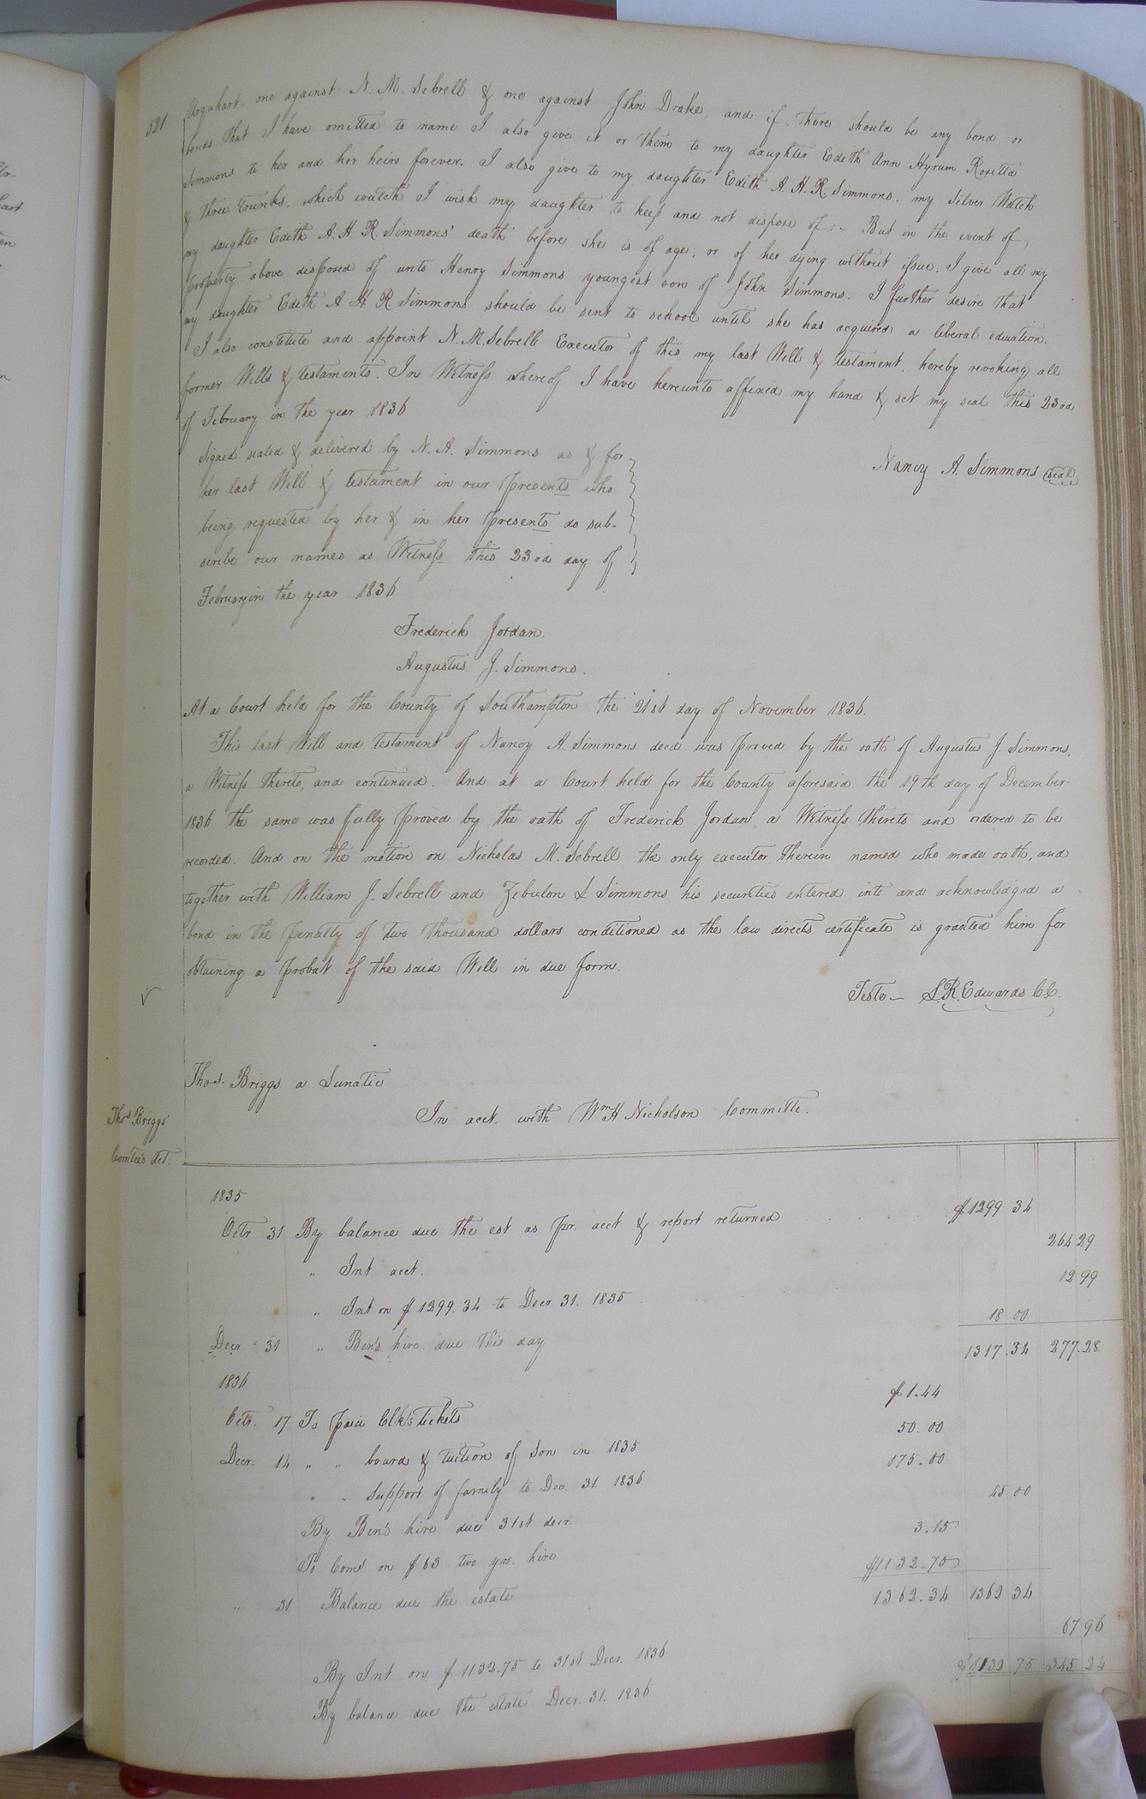 521
Urquhart. one against N. M. Sebrell & one against John Drake, and if there should be any bond or
bonds that I have omitted to name I also give it or them to my daughter Edith Ann Hyrum Rosetta
Simmons to her and her heirs forever. I also give to my daughter Edith A. H. R Simmons. my Silver Watch
& three trunks. which watch I wish my daughter to keep and not dispose of:- But in the event of
my daughter Edith A. H R. Simmons' death before she is of age, or of her dying without issue, I give all my
property above disposed of unto Henry Simmons youngest son of John Simmons. I further desire that
my daughter Edith A H R Simmons should be sent to school until she has acquired a liberal eduation.
I also constitute and appoint N. M. Sebrell Executor of this my last Will & testament, hereby revoking all
former Wills & testaments. In Witness whereof I have hereunto affixed my hand & set my seal this 23rd
of February in the year 1836
Nancy A. Simmons (seal)
Signed sealed & delivered by N. A. Simmons as & for
her last Will & testament in our presents who
being requested by her & in her presents do sub-
scribe our names as Witness this 23rd day of
February in the year 1836
Frederick Jordan.
Augustus J. Simmons.
At a Court held for the County of Southampton the 21st day of November 1836.
This last Will and testament of Nancy A. Simmons decd was proved by the oath of Augustus J. Simmons,
a Witness thereto, and continued. And at a Court held for the County aforesaid the 19th day of December
1836 the same was fully proved by the oath of Frederick Jordan a Witness thereto and ordered to be
recorded. And on the motion on Nicholas M. Sebrell the only executor therein named who made oath, and
together with William J. Sebrell and Zebulon S Simmons his securities entered into and acknowledged a
bond in the penalty of two thousand dollars conditioned as the law directs certificate is granted him for
obtaining a probat of the said Will in due form.
Teste- L. R. Edwards C.C.
Thos. Briggs a Lunatic
In acct. with Wm H Nicholson Committe.
Thos Briggs
Comtee's Act.
1835
Octr 31 By balance due the est as pr. acct & report returned $1299 34
" Int acct. 264 29
" Int on $1299.34 to Decr 31. 1835 12 99
Decr 31 " Ben's hire due this day 18 00
1317.34 277.28
1836
Octr. 17 To paid Clk's tickets $1.44
Decr. 14 " " board & tuition of Son in 1835 50.00
" " Support of family to Dec. 31. 1836 175.00
By Ben's hire due 31st decr. 45 00
To Coms on $63 two yrs. hire 3.15
" 31 Balance due the estate $1132.75
1362.34 1362 34
By Int on $1132.75 to 31st Decr. 1836 67 96
By balance due the estate Decr. 31. 1836 $1132 75 345 24